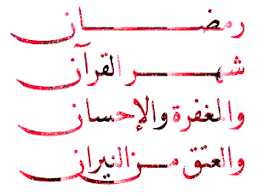 رمضان
شهر القرآن
والمغفرة والإحسان
والعتق من النيران